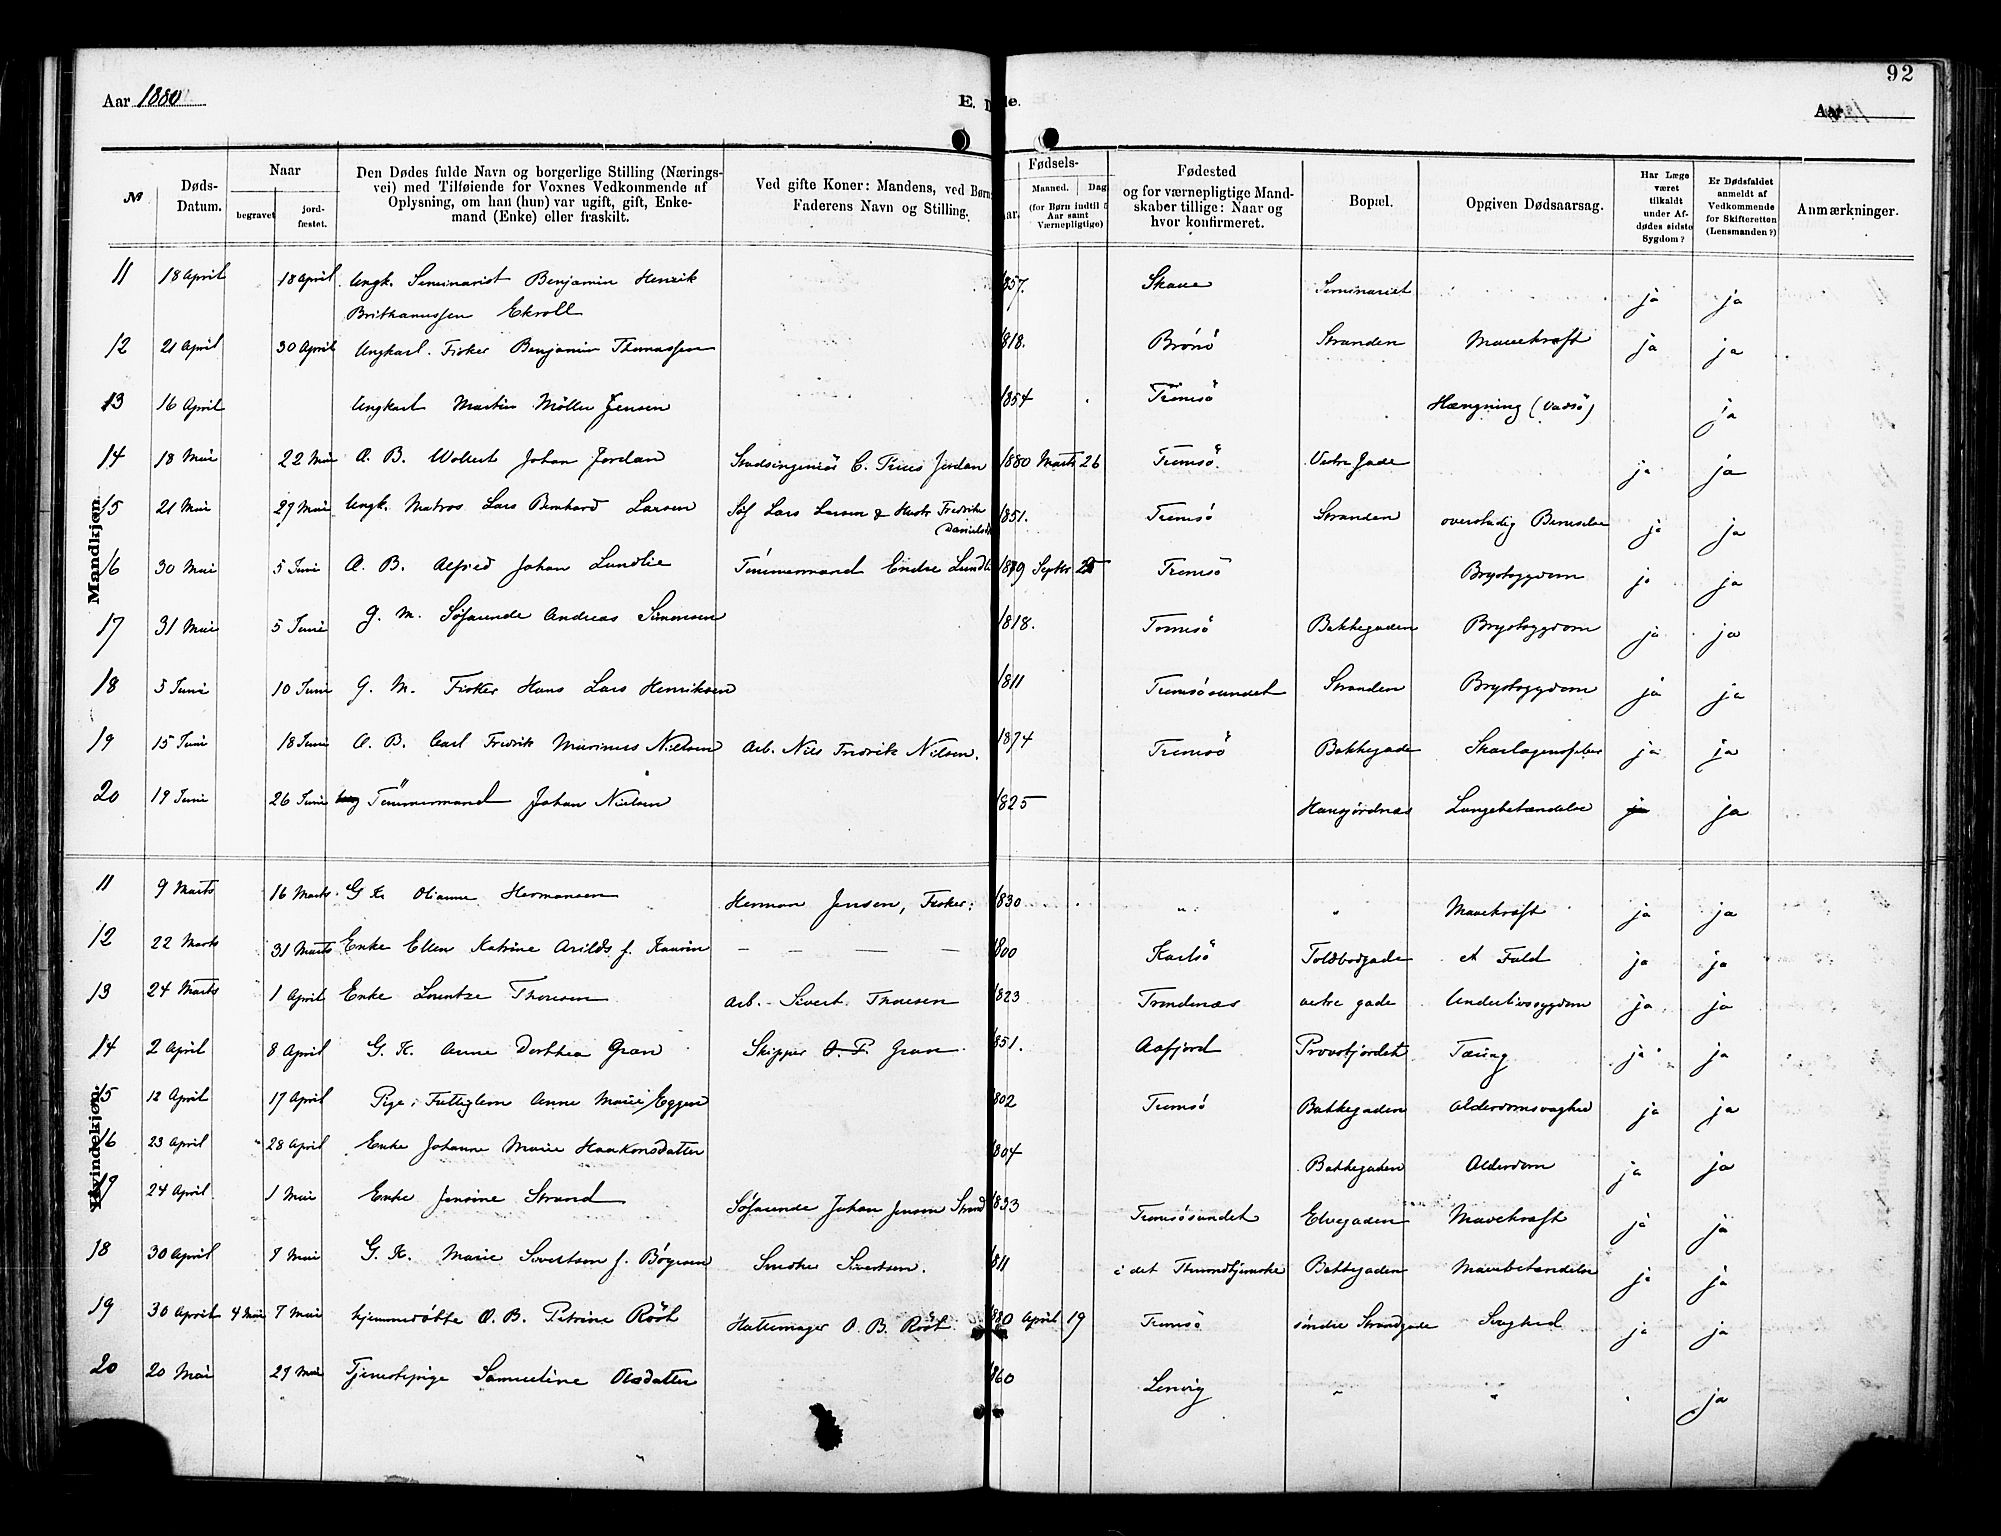 92
Aar 1880
E. Døde.
Aar
№ | Døds-Datum. | Naar begravet | jordfæstet. | Den Dødes fulde Navn og borgerlige Stilling (Næringsvei) med Tilføiende for Voxnes Vedkommende af Oplysning, om han (hun) var ugift, gift, Enkemand (Enke) eller fraskilt. | Ved gifte Koner: Mandens, ved Børn Faderens Navn og Stilling. | Fødsels- Aar. | Maaned. | Dag (for Børn indtil Aar samt Værnepligtige) | Fødested og for værnepligtige Mandskaber tillige: Naar og hvor konfirmeret. | Bopæl. | Opgiven Dødsaarsag. | Har Læge været tilkaldt under Afdødes sidste Sygdom? | Er Dødsfaldet anmeldt af Vedkommende for Skifteretten (Lensmanden?) | Anmærkninger.
Mandkjøn.
11 18 April 18 April Ungk. Seminarist Benjamin Henrik 1857. Seminariet ja ja
Ekroll
12 21 April 30 April Ungkarl. Fisker Benjamin Thomassen 1818. Brønö Stranden Mavekræft ja ja
13 16 April Ungkarl Martin Möller Jensen 1854 Tromsö Hængning (Vadsö) ja
14 18 Mai 22 Mai A. B. Johan Jordan Stadsingeniör C. Jordan 1880 Marts 26 Tromsö. Vestre Gade ja ja
15 21 Mai 27 Mai Ungk. Matros Lars Bernhard Larsen Søf Lars Larsen & Hustr Fredrikke 1851. Tromsö Stranden overstadig Beruselse ja ja
16 30 Mai 5 Juni A. B. Alfred Johan Lundlie Tömmermand Endre Lundlie 1879 Septbr Tromsö Brystsygdom ja ja
17 31 Mai 5 Juni G. M. Søfarende Andreas Simonsen 1818. Tromsö Bakkegaden Brystsygdom ja ja
18 5 Juni 10 Juni G. M. Fisker Hans Lars Henriksen 1811 Tromsösundet Stranden Brystsygdom ja ja
19 15 Juni 18 Juni A. B. Carl Fredrik Marinus Nielsen Arb. Nils Fredrik Nilsen. 1874 Tromsö Bakkegade Skarlagensfeber ja ja
20 19 Juni 26 Juni Tömmermand Johan Nielsen 1825 Hansjordnæs Lungebetændelse ja ja
Kvindekjøn.
11 9 Marts 16 Marts G K. Olianne Hermansen Herman Jensen, Fisker. 1830 " " Mavekræft ja ja
12 22 Marts 31 Marts Enke Ellen Katrine Arilds f. Kaurin — — — — 1800 Karlsö Toldbodgade et Fald ja ja
13 24 Marts 1 April Enke Lorentze Thoresen Arb. Sivert Thoresen 1823 Trondenæs vestre gade Underlivssygdom ja ja
14 2 April 8 April G. K. Anne Dorthea Gran Skipper O. P. Gran 1851. Aafjord Provstjordet Tæring ja ja
15 12 April 17 April Pige, Fattiglem Anne Marie Eggen 1802 Tromsö Bakkegaden Alderdomssvaghed ja ja
16 23 April 28 April Enke Johanne Marie Haakonsdatter 1804 Bakkegaden Alderdom ja ja
17 24 April 1 Mai Enke Jensine Strand Søfarende Johan Jensen Strand 1833 Tromsösundet Elvegaden Mavekræft ja ja
18 30 April 8 Mai G. K. Marie Sivertsen f. Börgesen Snedker Sivertsen. 1811 i det Throndhjemske Bakkegaden Mavebetændelse ja ja
19 30 April 4 Mai 7 Mai hjemmedöbte A. B. Petrine Rööt Hattemager O. B. Rööt. 1880 April 19 Tromsö söndre Strandgade Svaghed ja ja
20 20 Mai 29 Mai Tjenestepige Samueline Olsdatter 1860 Lenvig " " ja